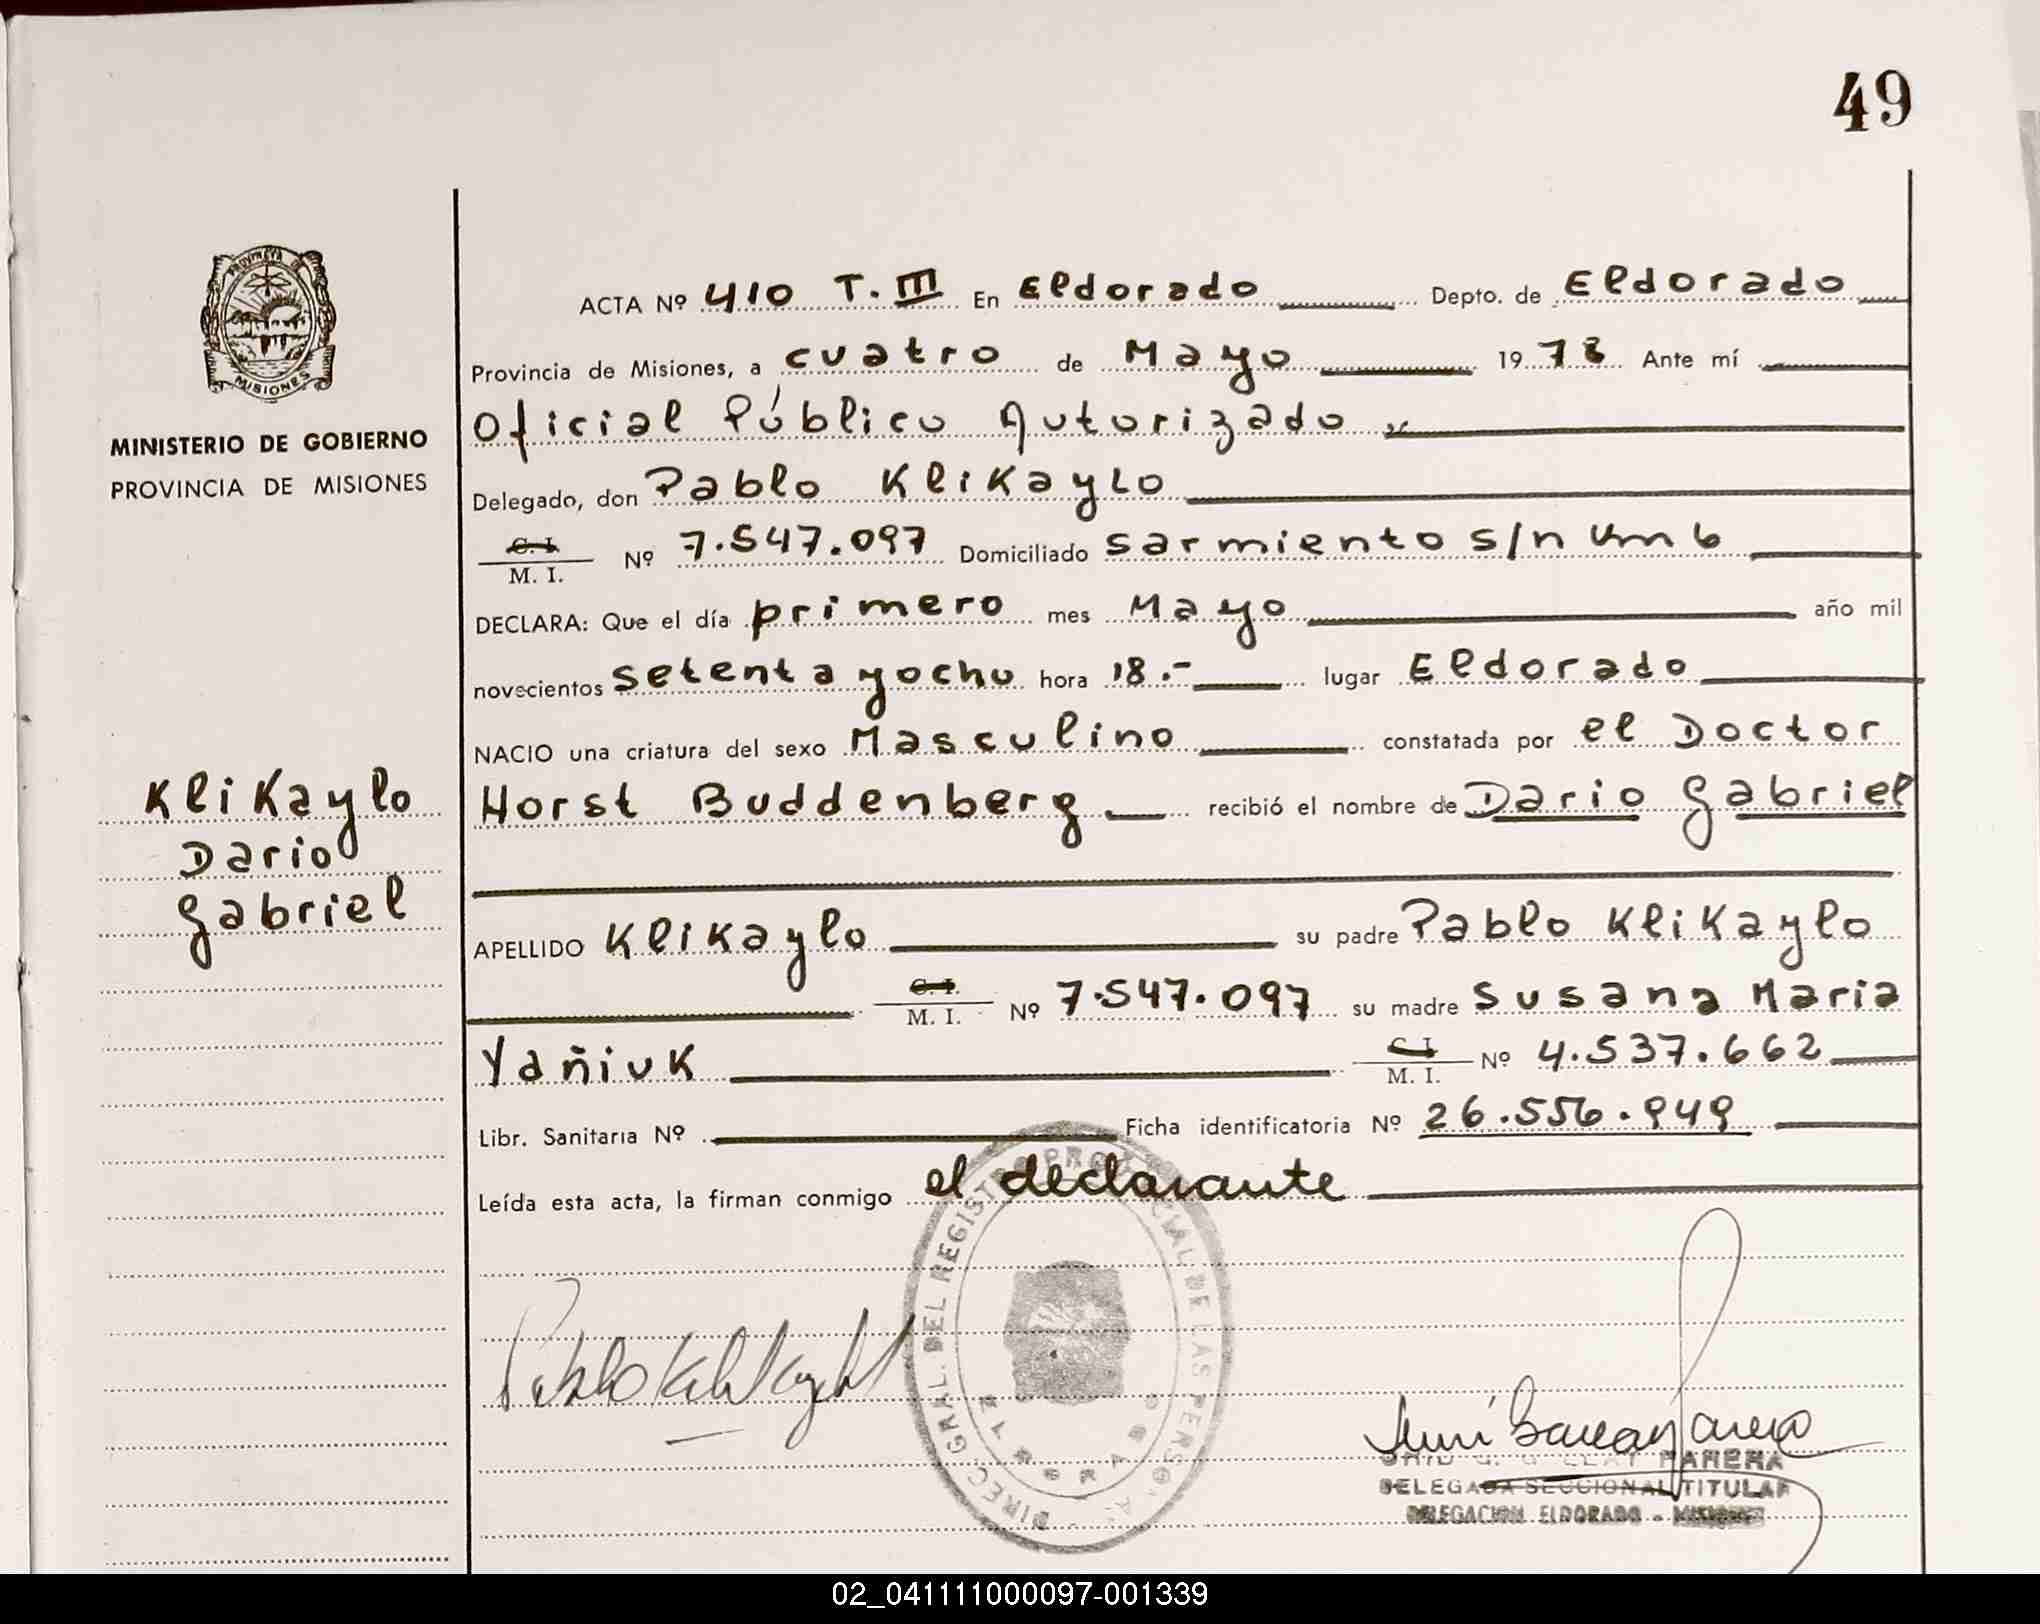 49
PROVINCIA DE
MISIONES
MINISTERIO DE GOBIERNO
PROVINCIA DE MISIONES
KliKaylo
Dario
Gabriel
ACTA Nº 410 T. III En Eldorado Depto. de Eldorado
Provincia de Misiones, a cuatro de Mayo 1978 Ante mí
Oficial Público Autorizado
Delegado, don Pablo KliKayLo
C. I. M. I. Nº 7.547.097 Domiciliado sarmiento s/n Km 6
DECLARA: Que el día primero mes Mayo año mil
novecientos setenta yocho hora 18.- lugar Eldorado
NACIO una criatura del sexo Masculino constatada por el Doctor
Horst Buddenberg recibió el nombre de Dario Gabriel
APELLIDO KliKaylo su padre Pablo KliKaylo
C. I. M. I. Nº 7.547.097 su madre Susana Maria
Yañiuk C. I. M. I. Nº 4.537.662
Libr. Sanitaria Nº Ficha identificatoria Nº 26.556.949
Leída esta acta, la firman conmigo el declarante
DIREC. GRAL. DEL REGISTRO PROVINCIAL DE LAS PERSO
Pablo Klikaylo
PARERA
DELEGADA SECCIONAL TITULAR
DELEGACION ELDORADO - MISIONES
02_041111000097-001339